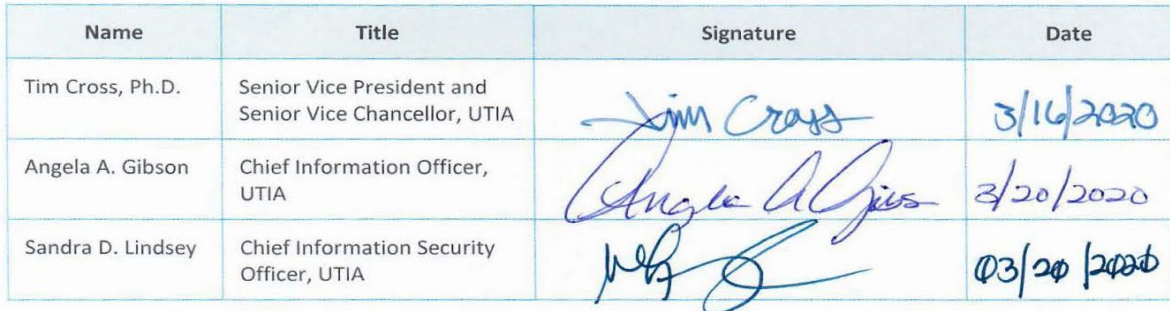 Name Title Signature Date
Tim Cross, Ph.D. Senior Vice President and
Senior Vice Chancellor, UTIA
Tim Cross 3/16/2020
Angela A. Gibson Chief Information Officer,
UTIA
Angela A 3/20/2020
Sandra D. Lindsey Chief Information Security
Officer, UTIA
03/20/2020